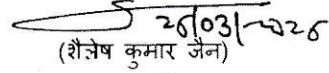 26/03/2026
(शैलेष कुमार जैन)